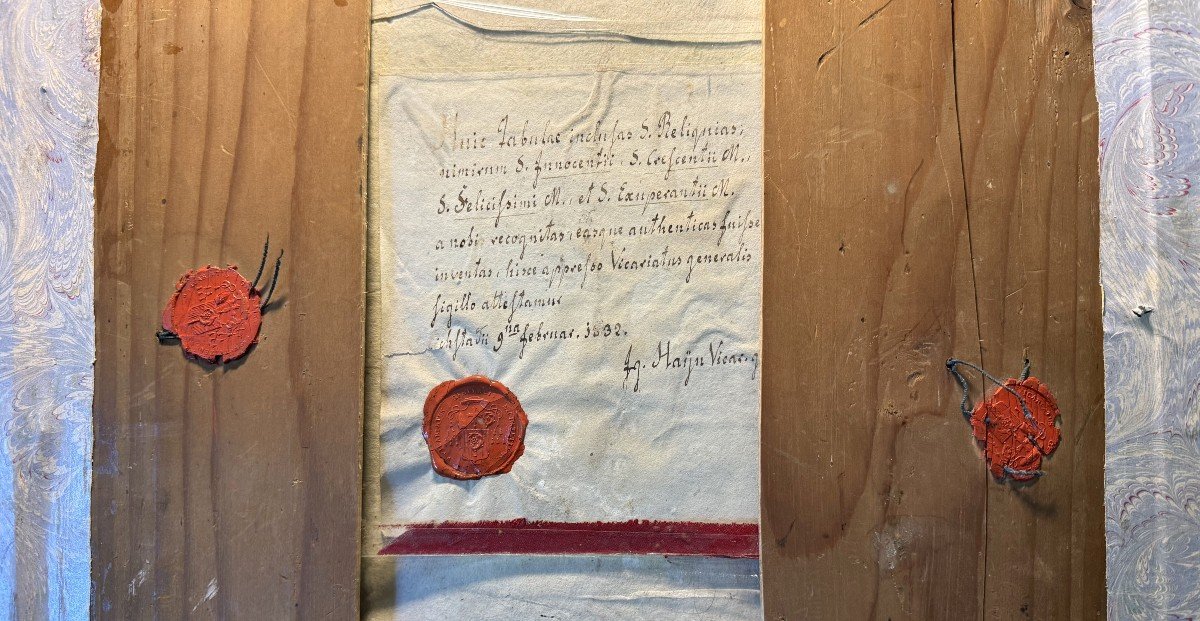 Huic Tabulae inclusas S. Reliquias,
nimirum S. Innocentii, S. Crescentii M.,
S. Felicissimi M., et S. Exuperantii M.
a nobis recognitas, easque authenticas fuisse
inventas, hisce appresso Vicariatus generalis
sigillo attestamur
9na Februar. 1832.
Vicar. g